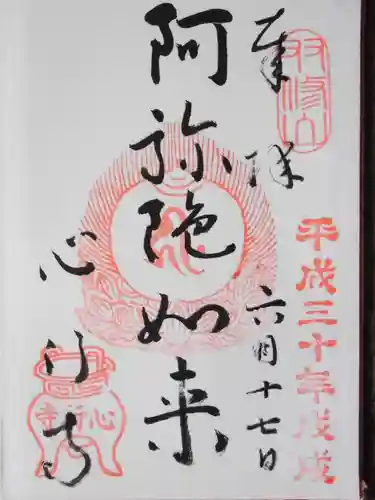 双修山
奉拝
平成三十年戊戌
六月十七日
阿弥陀如来
心行寺
心行寺